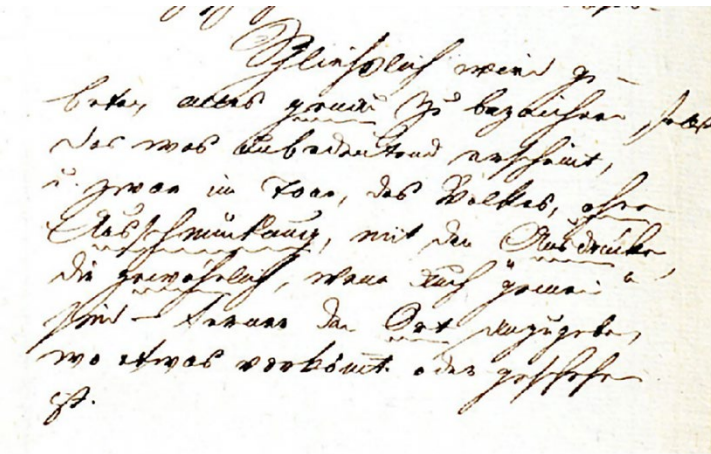 Schließlich wird ge-
beten alles genau zu bezeichnen, selbst
das was unbedeutend erscheint,
u. zwar im Tone, des Volkes, ohne
Ausschmückung, mit den Ausdrücken,
die gewöhnlich, wenn auch "gemein"
sind – ferner den Ort anzugeben,
wo etwas vorkömt oder geschehen
ist.